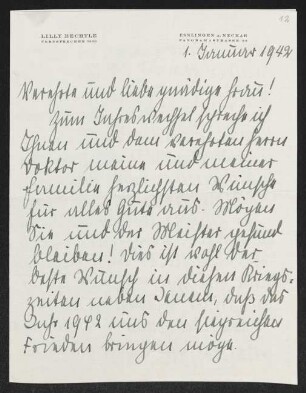 12
LILLY BECHTLE
FERNSPRECHER
ESSLINGEN a. NECKAR
1. Januar 1942
Verehrte und liebe gnädige Frau!
Zum Jahreswechsel spreche ich
Ihnen und dem verehrten Herrn
Doktor meine und meiner
Familie herzlichsten Wünsche
für alles Gute aus. Mögen
Sie und der Meister gesund
bleiben! Dies ist wohl der
beste Wunsch in diesen Kriegs-
zeiten neben Jenem, daß das
Jahr 1942 uns den siegreichen
Frieden bringen möge.